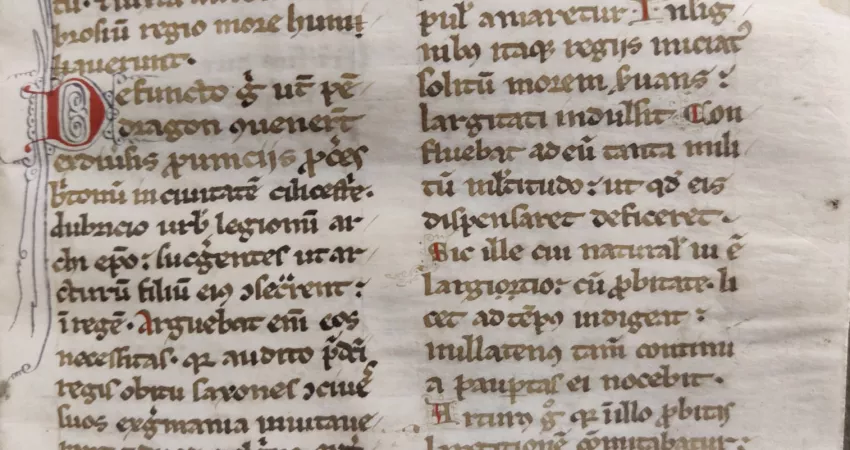 brosiū regio more humi
hauerunt.
Defuncto g̃ ut̃ pē
dragon ꝯuener̃t
ex diuersis prouinciis ꝓc̃es
b̾tonū in ciuitatē cilicestr̃e.
dubricio urb̾ legionū ar
chi ep̄o: sug̃gentes ut ar
cturū filiū eiꝰ ꝯsec̃rent:
ī regē. Arguebat em̄ eos
necessitas. qr audito p̄dc̄i
regis obitu saxones ꝯciues̄
suos ex g̃mania inuitaue
pul̾ amaretur In sig
nibꝫ itaqꝫ regiis iniciatꝰ
solitū morem ẜuans:
largitati indulsit. Con
fluebat ad eū tanta mili
tū mĺtitudo: ut qd̾ eis
dispensaret deficeret.
Sic ille cui natural̾ īn ē
largitio: cū ꝓbitate. li
cet ad tēpꝰ indigeat:
nullatenꝰ tam̄ continu
a paup̱tas ei nocebit.
Arturꝰ g̃ qr in illo ꝓbitas
largitionē comitabatur: